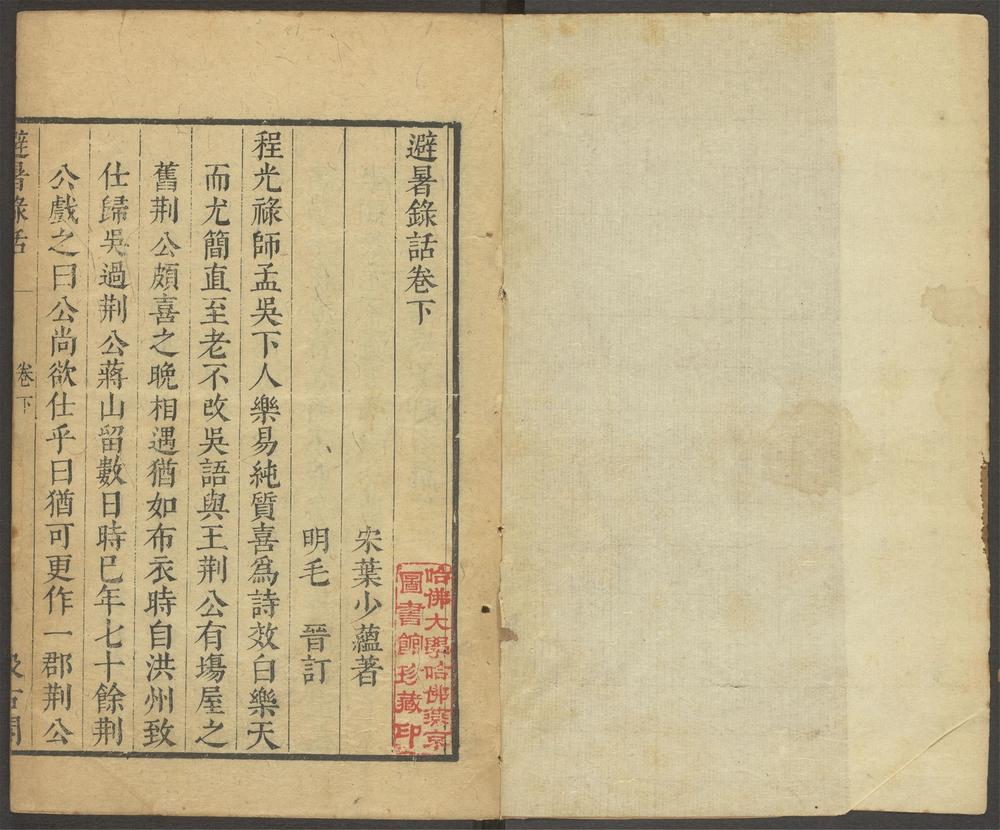 避暑錄話卷下
宋葉少蘊著
明毛　晉訂
程光祿師孟吳下人樂易純質喜爲詩效白樂天
而尤簡直至老不改吳語與王荆公有塲屋之
舊荆公頗喜之晚相遇猶如布衣時自洪州致
仕歸吳過荆公蔣山留數日時巳年七十餘荆
公戲之曰公尚欲仕乎曰猶可更作一郡荆公
避暑錄話　卷下　汲古閣
哈佛大學哈佛燕京
圖書館珍藏印